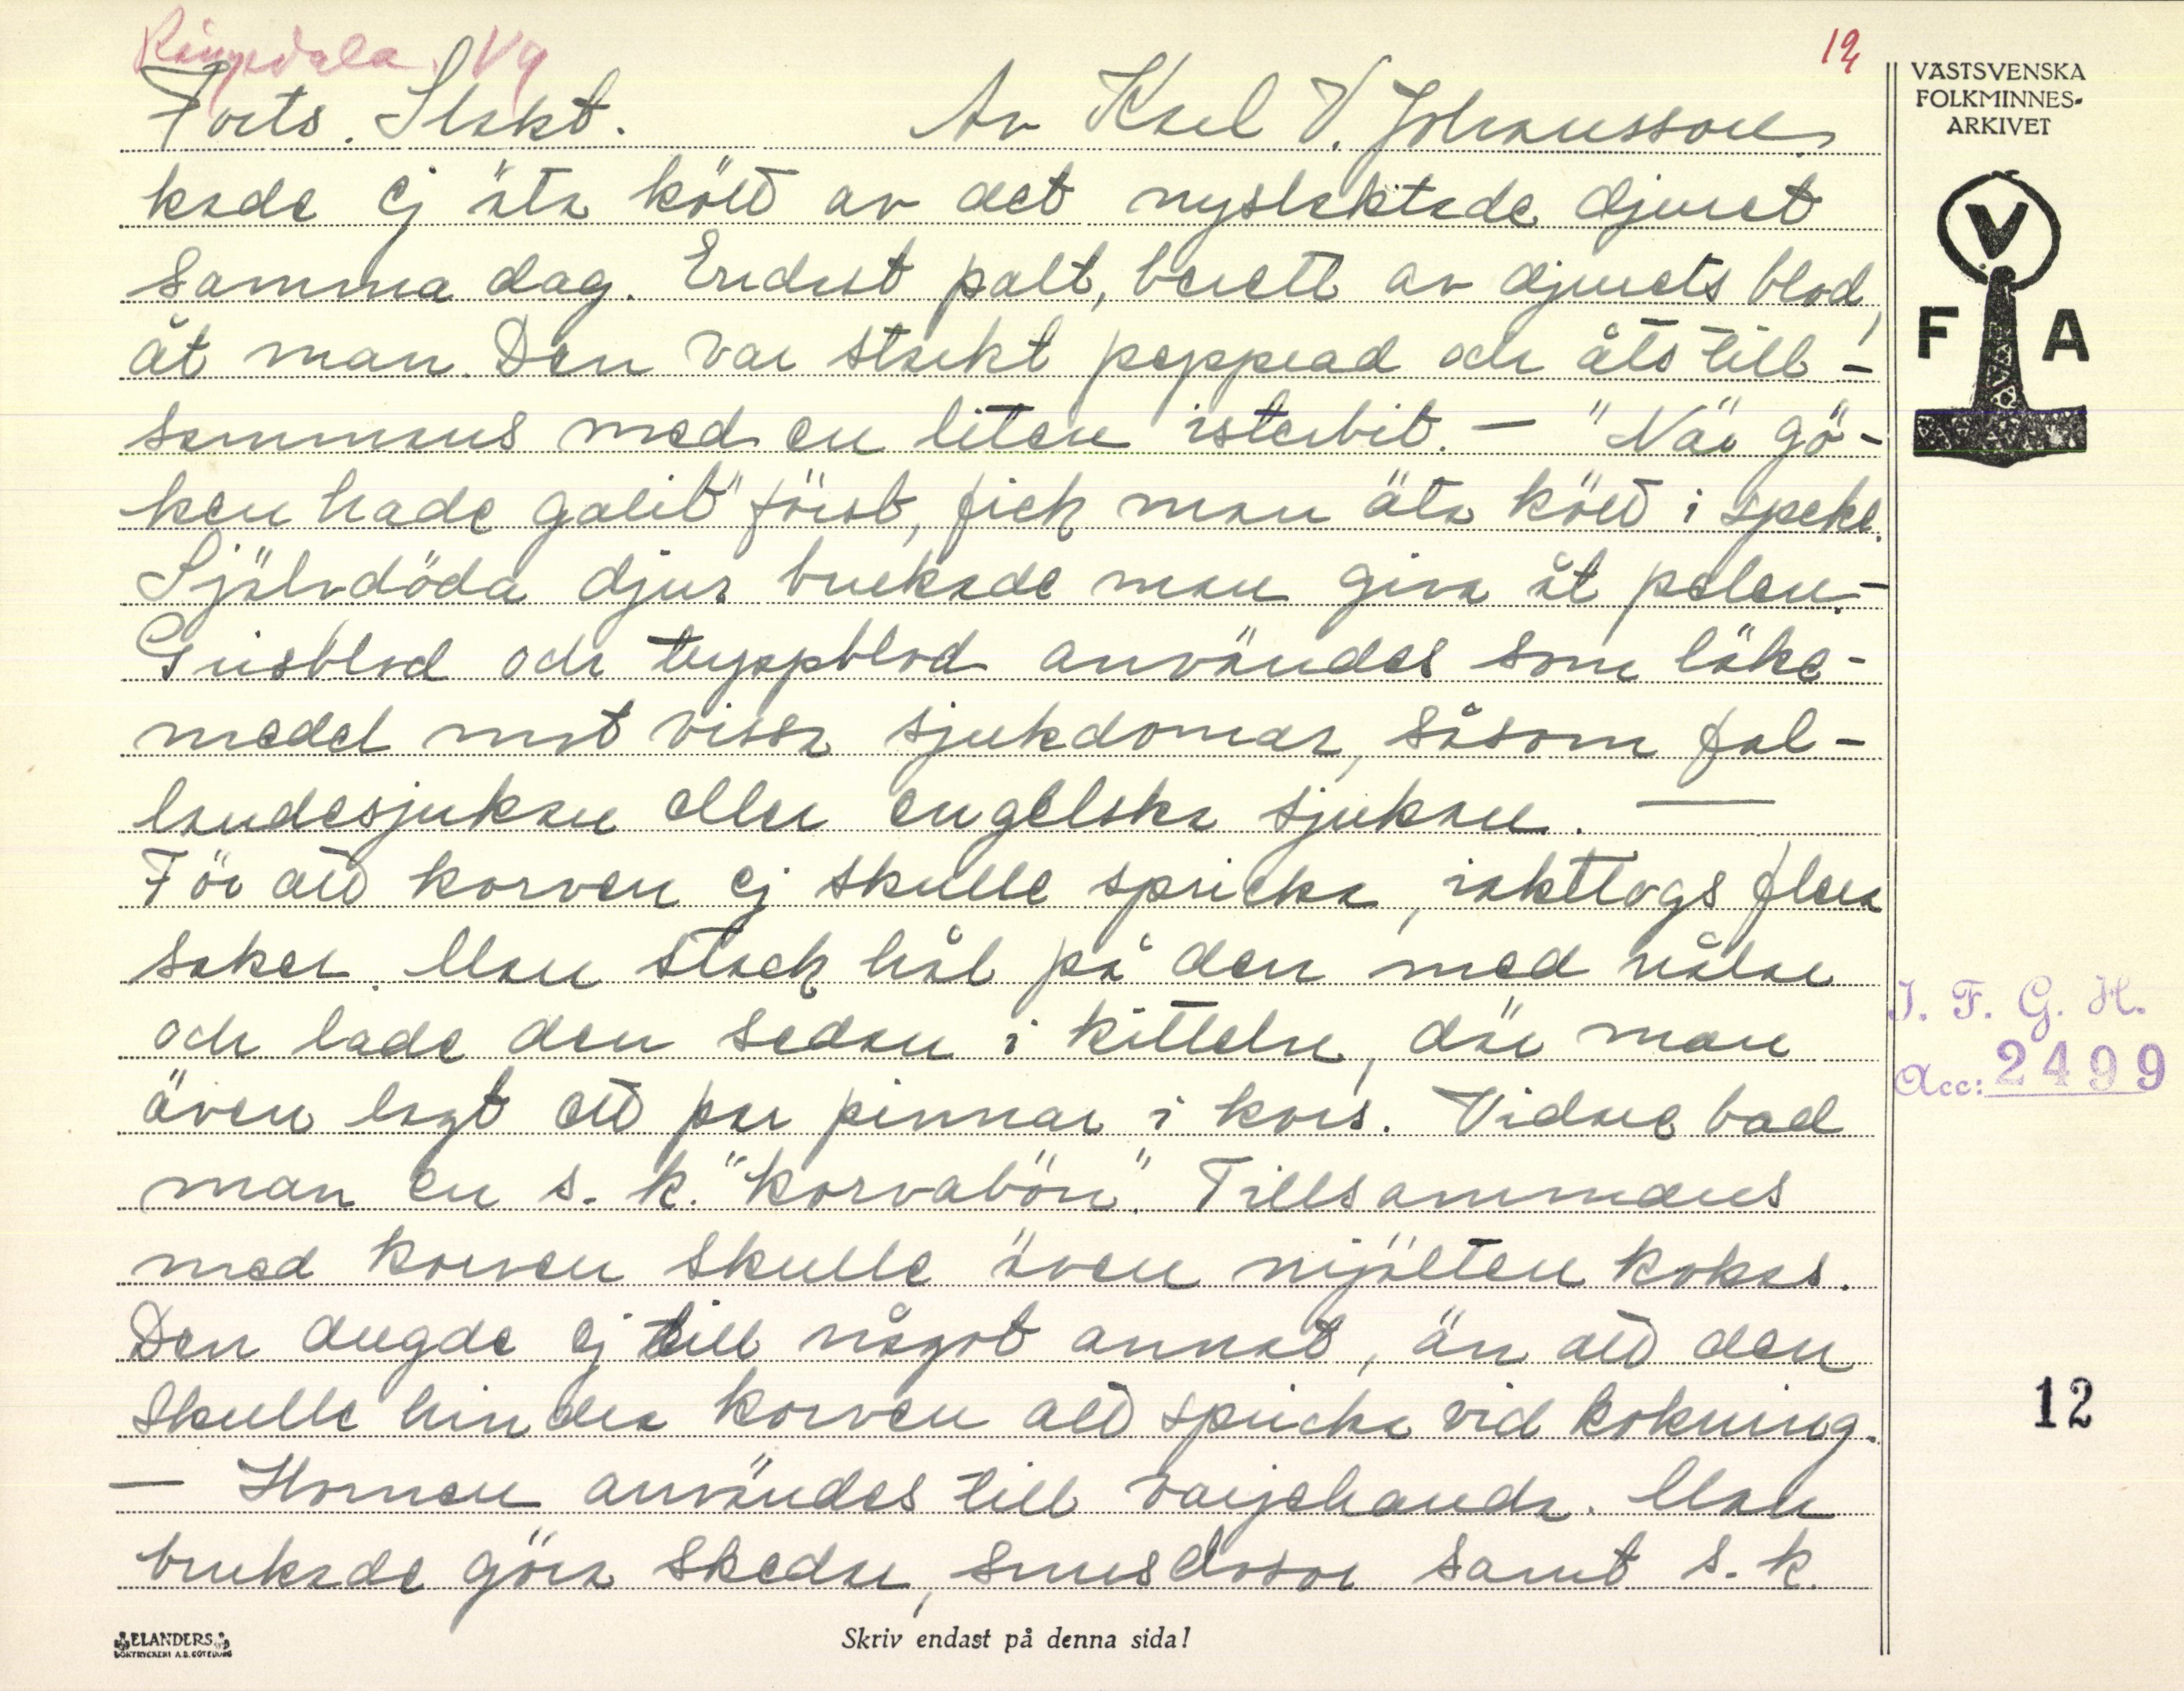 Ringedala. Vg
12
Forts. Slakt. Av Karl V. Johansson.
kade ej äta kött av det nyslaktade djuret
samma dag. Endast palt, berett av djurets blod,
åt man. Den var starkt peppead och åts till-
sammans med en liten isterbit. — "När gö-
ken hade galit" först, fick man äta kött i speke.
Självdöda djur brukade man giva åt pelen. —
Grisblod och tuppblod användes som läke-
medel mot vissa sjukdomar, såsom fal-
landesjukan eller engelska sjukan. —
För att korven ej skulle spricka, iakttogs flera
saker. Man stack hål på den med nålar
och lade den sedan i kitteln, där man
även lagt ett par pinnar i kors. Vidare bad
man en s. k. "korvabön". Tillsammans
med korven skulle även mjälten kokas.
Den dugde ej till något annat, än att den
skulle hindra korven att spricka vid kokning.
— Hornen användes till varjehanda. Man
brukade göra skedar, snusdosor samt s. k.
VÄSTSVENSKA
FOLKMINNES-
ARKIVET
V
F A
I. F. G. H.
Acc: 2499
12
ELANDERS
BOKTRYCKERI A.B. GÖTEBORG
Skriv endast på denna sida!